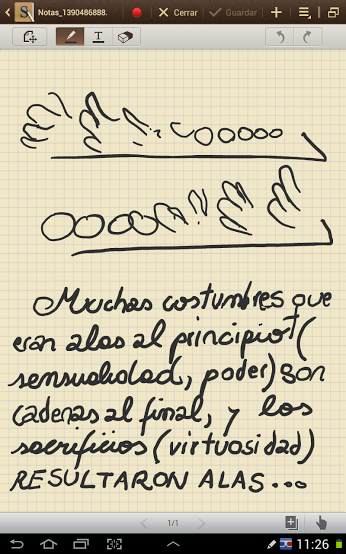 Notas_1390486888.
Cerrar
Guardar
Muchas costumbres que
eran alas al principio (
sensualidad, poder) son
cadenas al final, y los
sacrificios (virtuosidad)
RESULTARON ALAS...
1/1
11:26